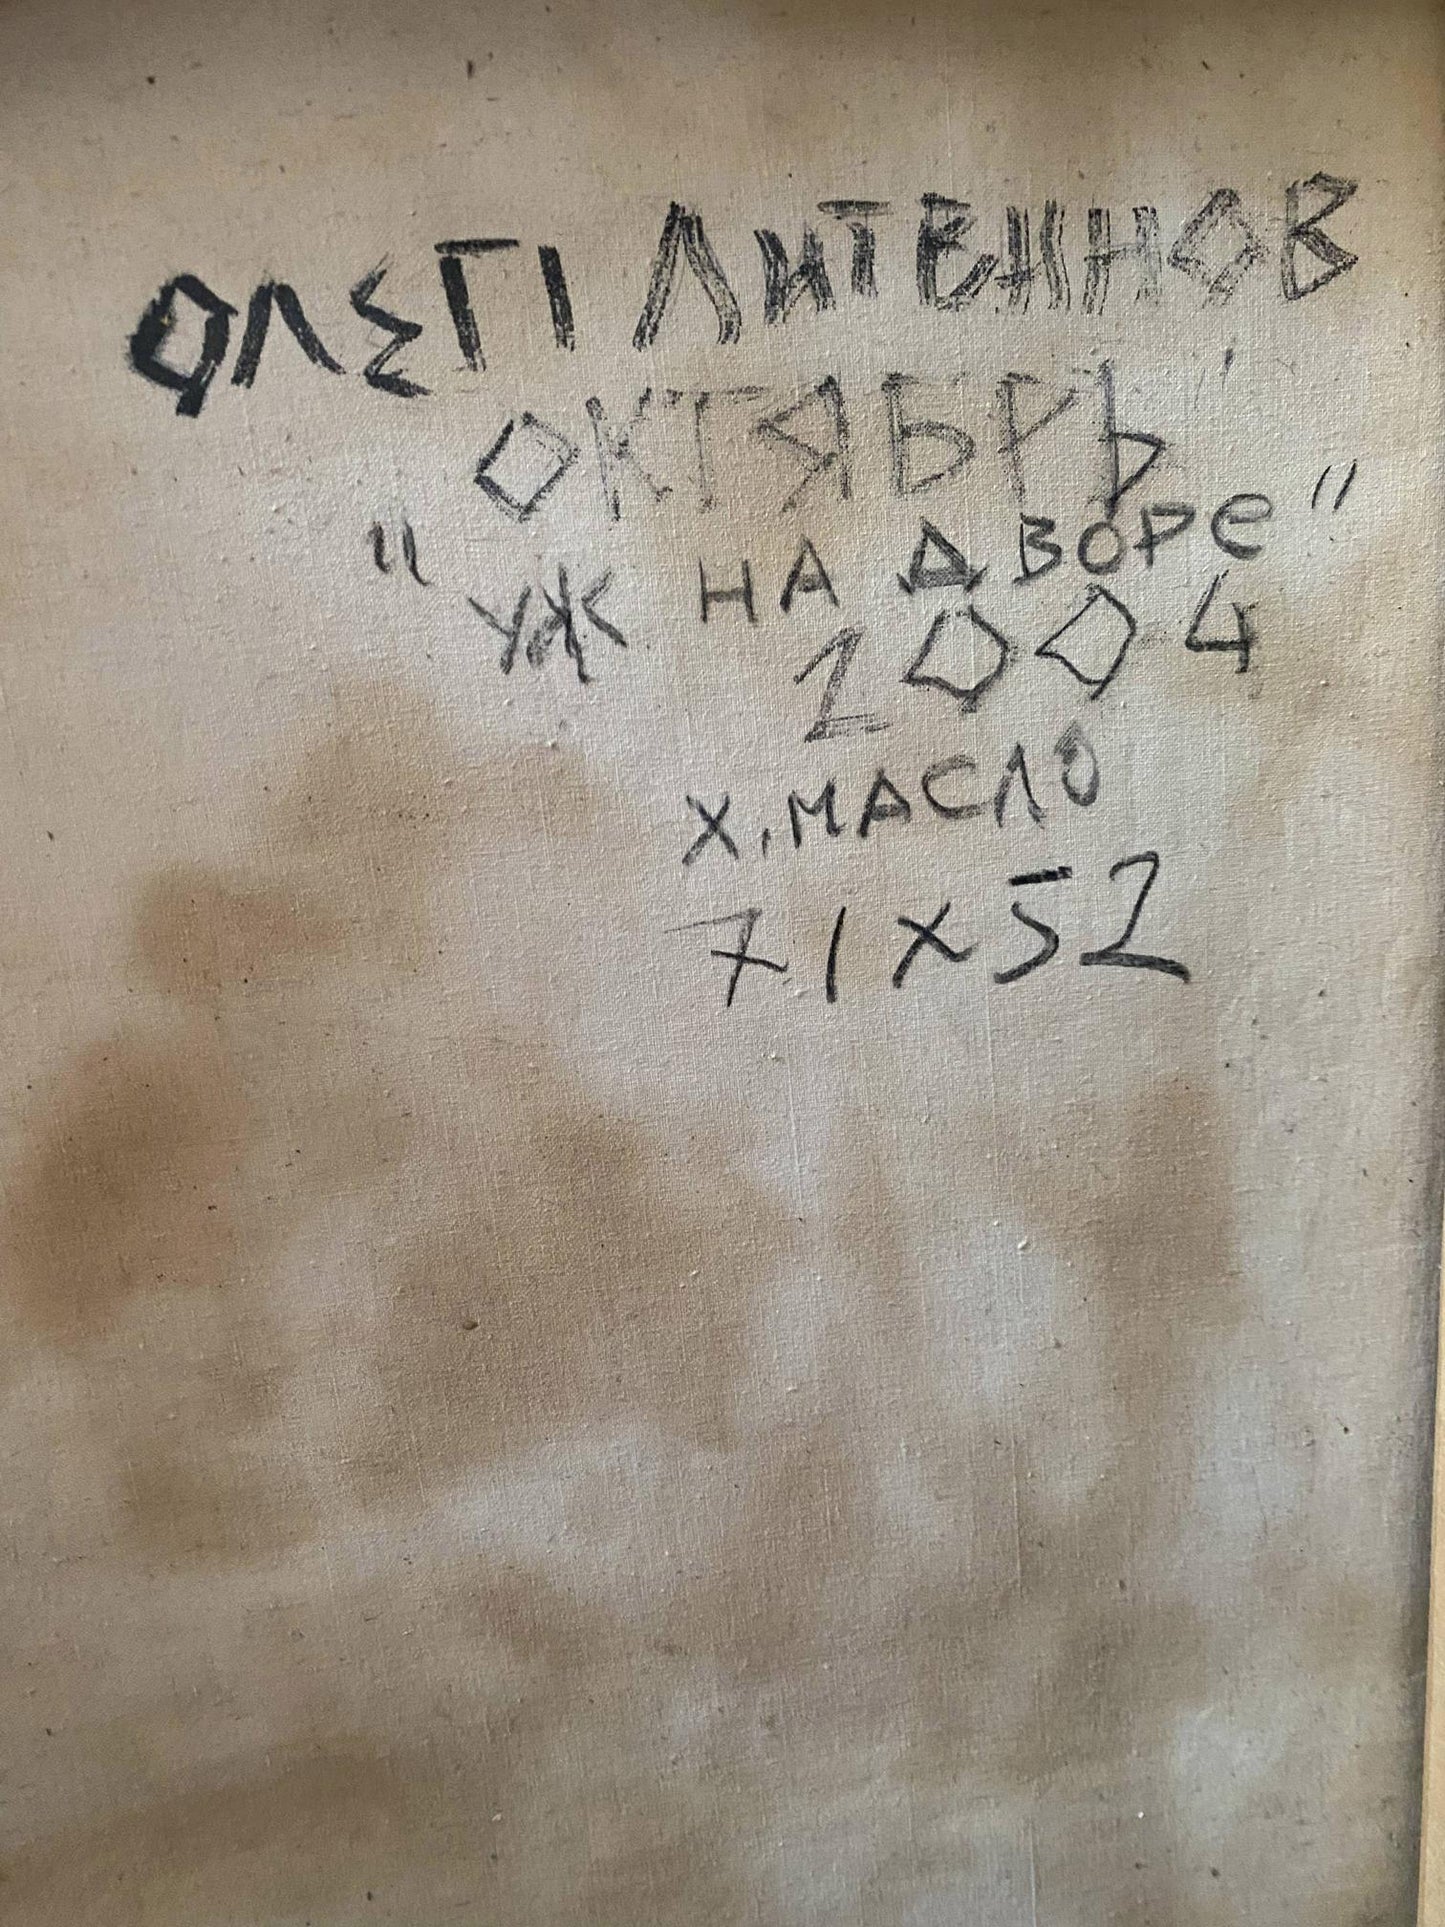 ОЛЕГ ЛИТВИНОВ
ОКТЯБРЬ
"УЖ НА ДВОРЕ"
2004
Х. МАСЛО
71х52